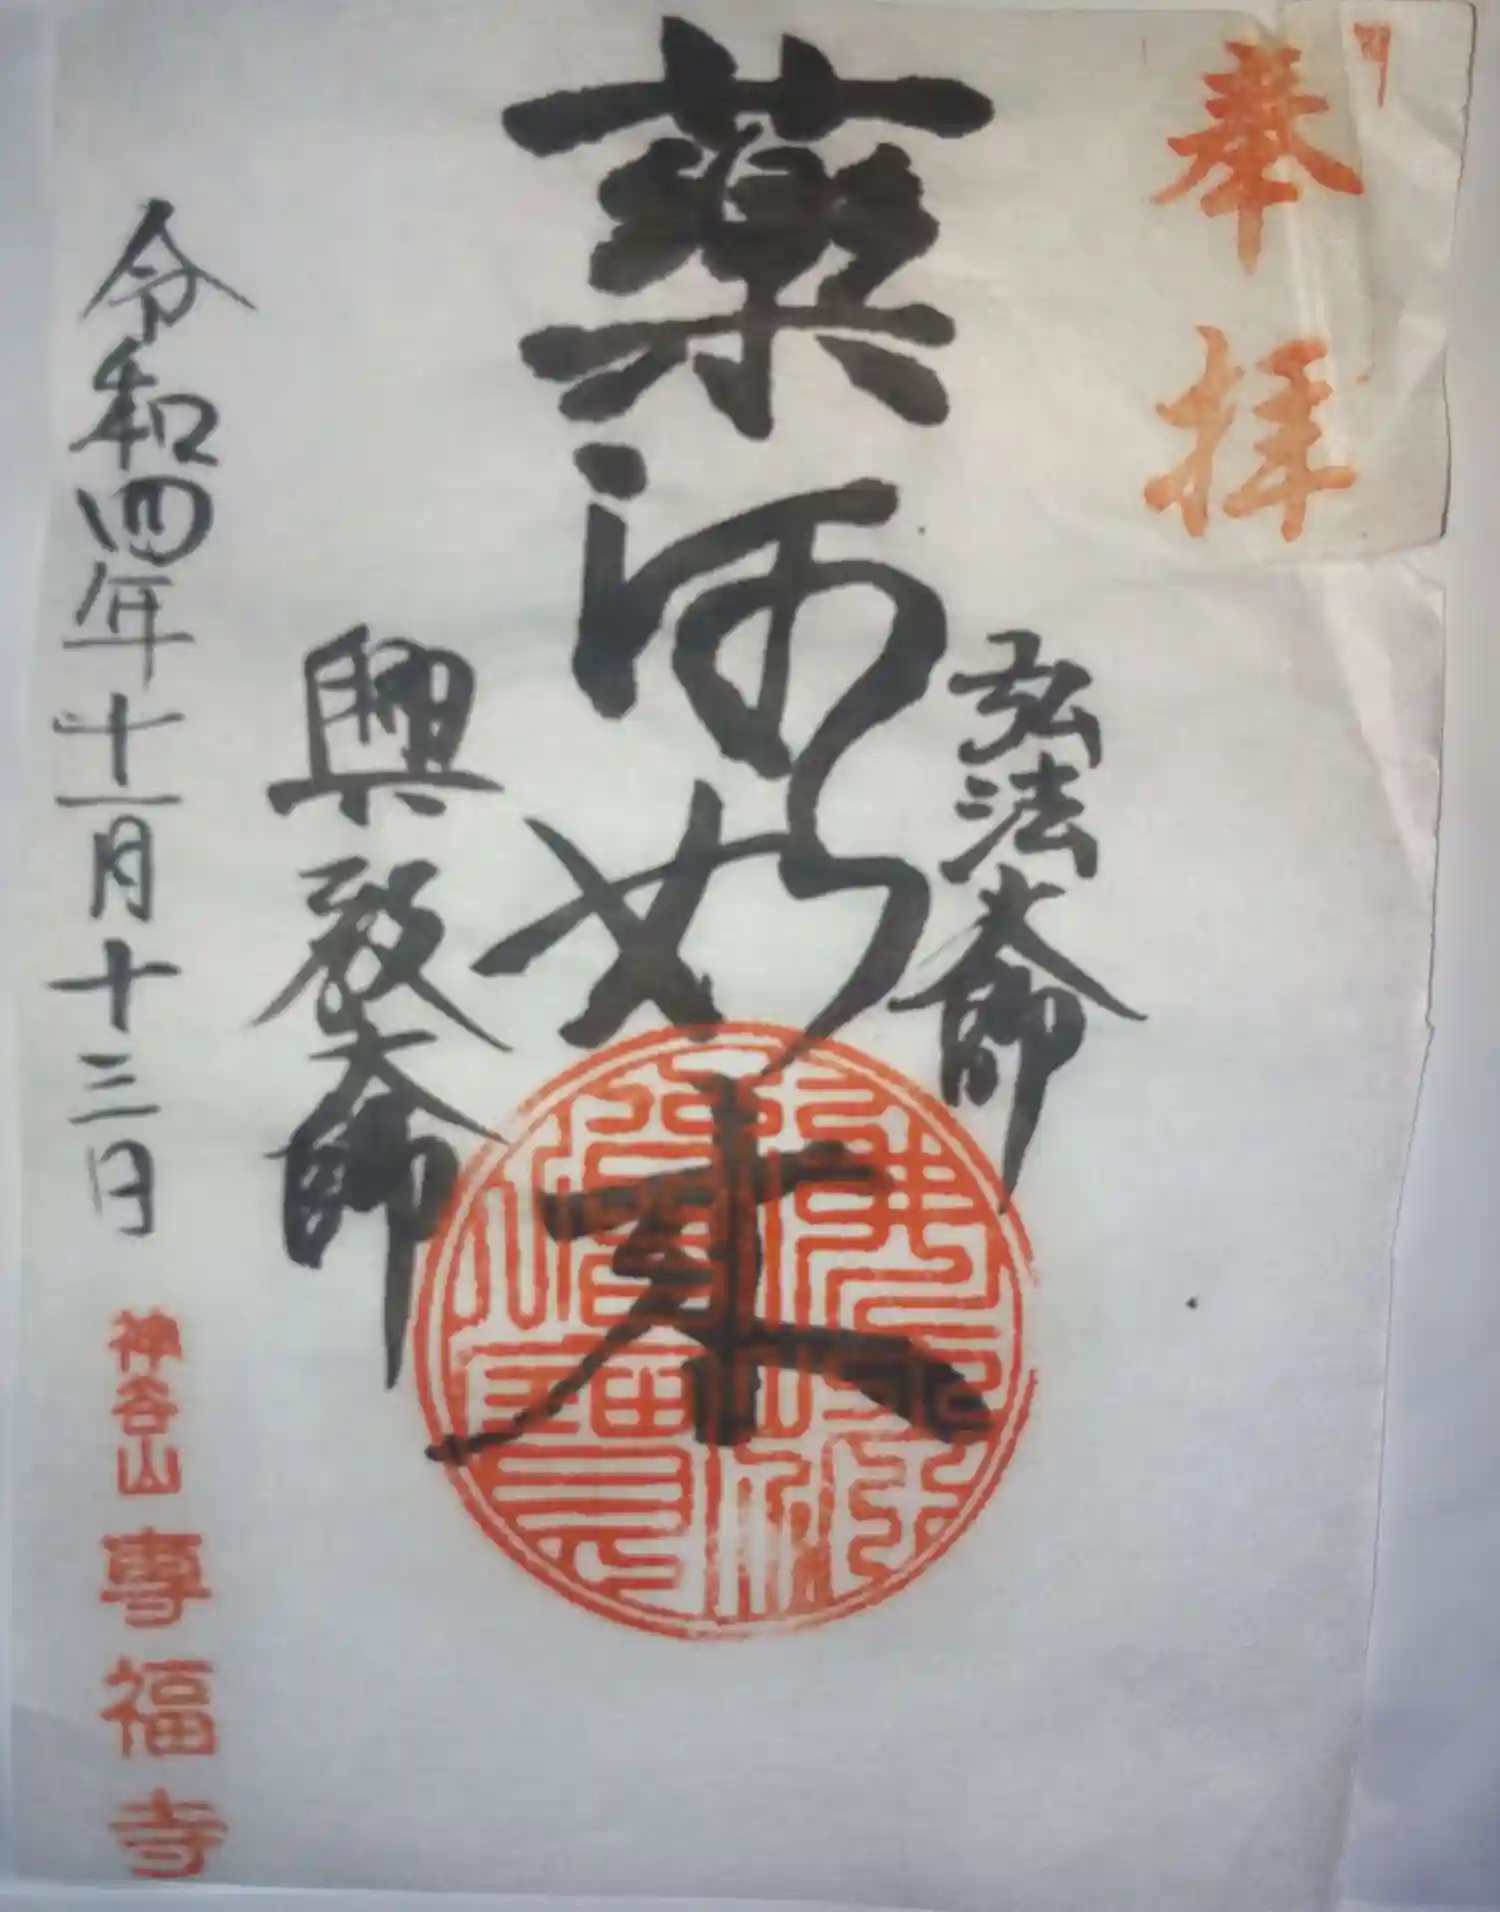 奉拝
弘法大師
薬師如来
興教大師
令和四年十一月十三日
神谷山 專福寺